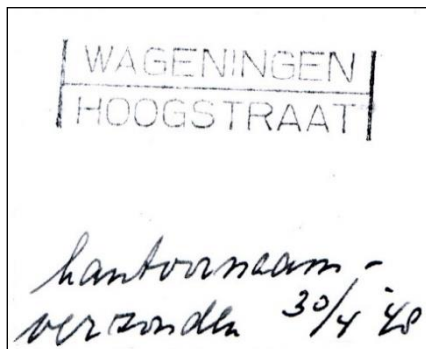 WAGENINGEN
HOOGSTRAAT
kantoornaam-
verzonden 30/4 '48